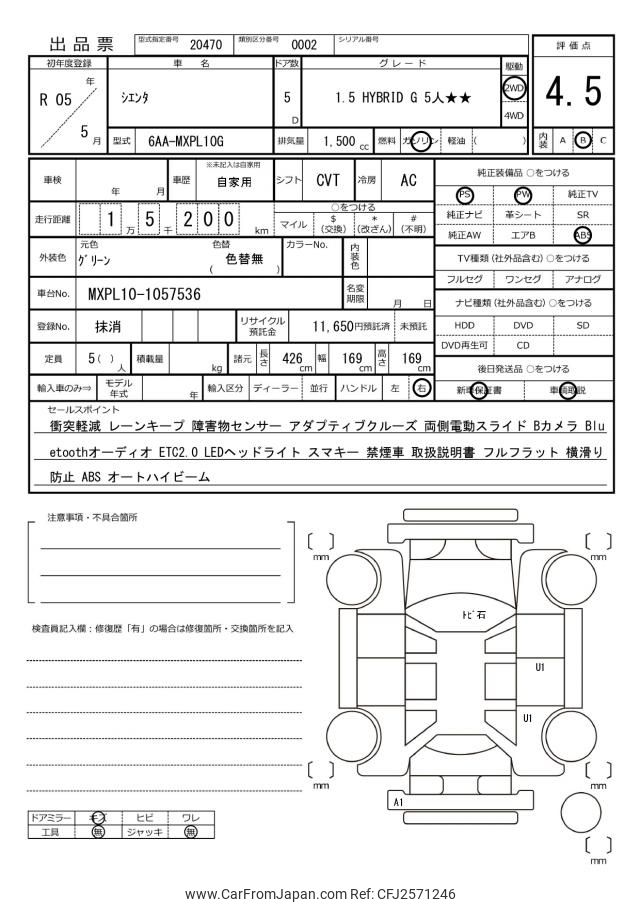 出品票 型式指定番号 20470 類別区分番号 0002 シリアル番号
評価点
4.5
内装 A B C
初年度登録 車名 ドア数 グレード 駆動
R 05 年 5 月
シエンタ
5 D
1.5 HYBRID G 5人★★
2WD
4WD
型式 6AA-MXPL10G 排気量 1,500 cc 燃料 ガソリン 軽油 ( )
車検 年 月 車歴 ※未記入は自家用 自家用 シフト CVT 冷房 AC
走行距離 1 万 5 千 2 0 0 km
○をつける
マイル $(交換) *(改ざん) #(不明)
外装色 元色 グリーン 色替 ( 色替無 ) カラーNo. 内装色
車台No. MXPL10-1057536 名変期限 月 日
登録No. 抹消 リサイクル預託金 11,650円預託済 未預託
定員 5 ( ) 人 積載量 kg 諸元 長さ 426 cm 幅 169 cm 高さ 169 cm
輸入車のみ⇒ モデル年式 年 輸入区分 ディーラー ・ 並行 ハンドル 左 右
純正装備品 ○をつける
PS PW 純正TV
純正ナビ 革シート SR
純正AW エアB ABS
TV種類 (社外品含む) ○をつける
フルセグ ワンセグ アナログ
ナビ種類 (社外品含む) ○をつける
HDD DVD SD
DVD再生可 CD
後日発送品 ○をつける
新車保証書 車輌取説
セールスポイント
衝突軽減 レーンキープ 障害物センサー アダプティブクルーズ 両側電動スライド Bカメラ Blu
etoothオーディオ ETC2.0 LEDヘッドライト スマキー 禁煙車 取扱説明書 フルフラット 横滑り
防止 ABS オートハイビーム
注意事項・不具合箇所
検査員記入欄：修復歴「有」の場合は修復箇所・交換箇所を記入
mm
mm
トビ石
U1
U1
mm
mm
A1
mm
ドアミラー キズ ヒビ ワレ
工具 無 ジャッキ 無
www.CarFromJapan.com Ref: CFJ2571246